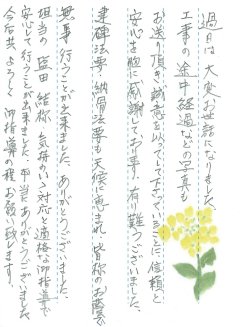 過日は大変お世話になりました。
工事の途中経過などの写真も
お送り頂き誠意を以って下さっていることに信頼と
安心を胸に感謝しており 有り難うございました。
建碑法要・納骨法要も天候に恵まれ 皆様のお蔭で
無事行うことが出来ました。ありがとうございました。
担当の 様 気持のいい対応と適格な御指導で
安心して行うことが出来ました。本当にありがとうございました。
今后共よろしく御指導の程お願い致します。